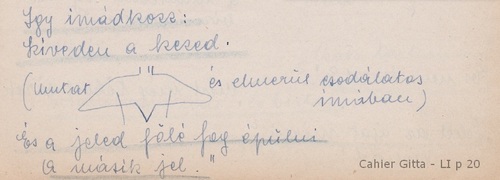 Így imádkozz:
kiveden a kezed.
(mutat és elmerül csodálatos
imában)
És a jeled fölé fog épülni
a másik jel."
Cahier Gitta - LI p 20